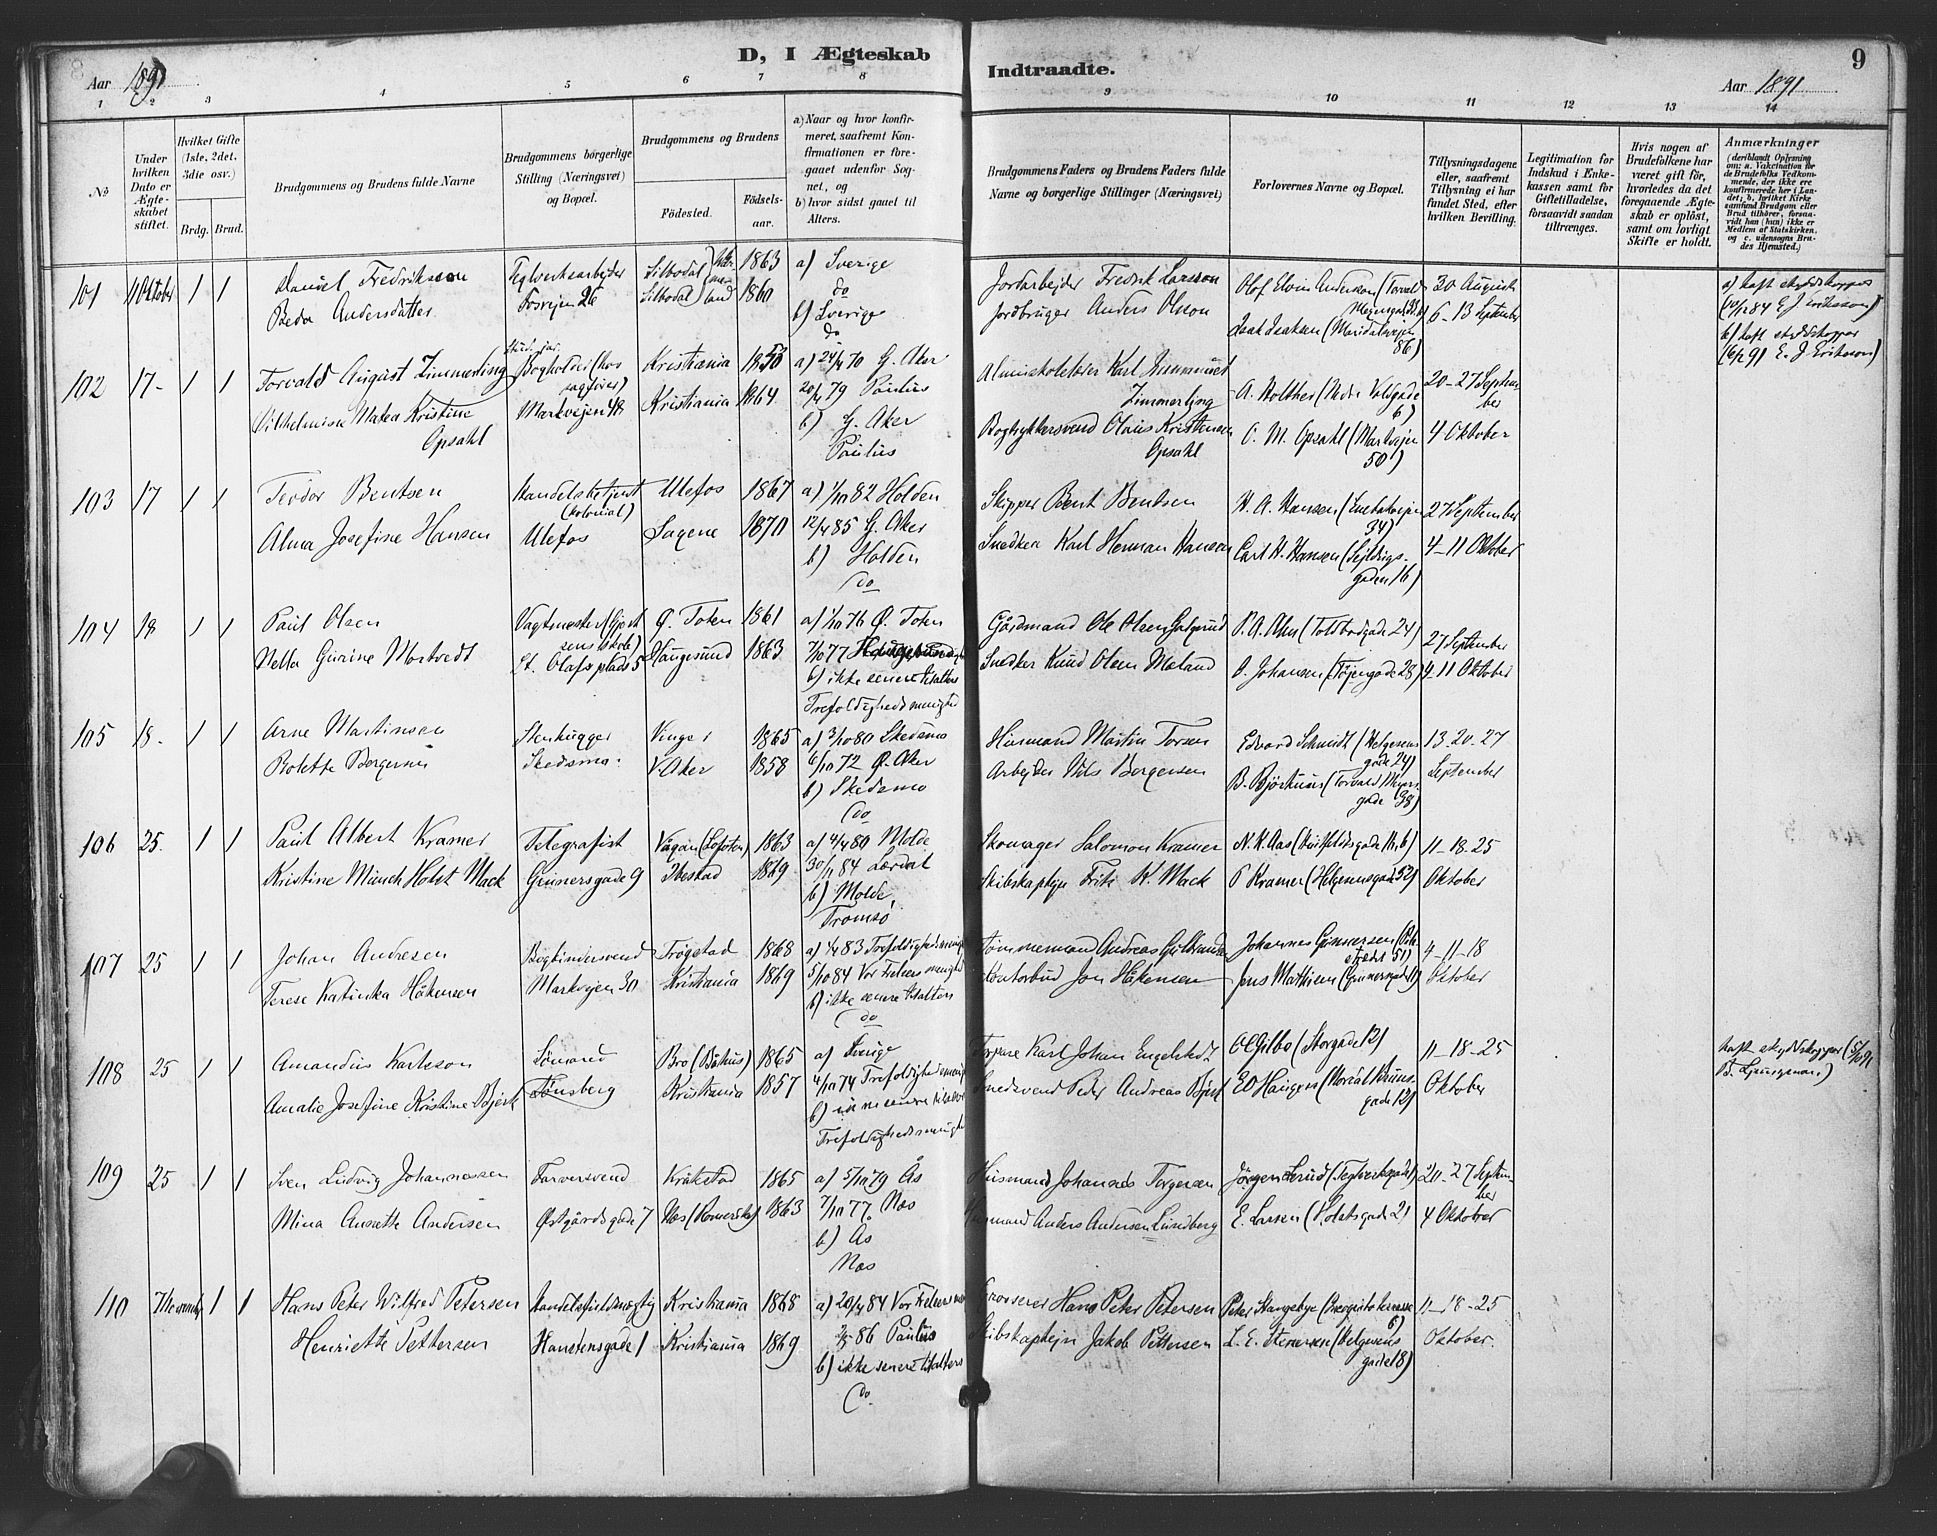 D, I Ægteskab
Indtraadte.
9
Aar 1891
Aar 1891
1 2 3 4 5 6 7 8 9 10 11 12 13 14
No
Under hvilken Dato er Ægteskabet stiftet.
Hvilket Gifte (1ste, 2det, 3die osv.)
Brdg. Brud.
Brudgommens og Brudens fulde Navne
Brudgommens børgerlige Stilling (Næringsvei) og Bopæl.
Brudgommens og Brudens
Fødested.
Fødselsaar.
a) Naar og hvor konfirmeret, saafremt Konfirmationen er foregaaet udenfor Sognet, og
b) hvor sidst gaaet til Alters.
Brudgommens Faders og Brudens Faders fulde Navne og borgerlige Stillinger (Næringsvei)
Forlovernes Navne og Bopæl.
Tillysningsdagene eller, saafremt Tillysning ei har fundet Sted, efter hvilken Bevilling.
Legitimation for Indskud i Enkekassen samt for Giftetilladelse, forsaavidt saadan tiltrænges.
Hvis nogen af Brudefolkene har været gift før, hvorledes da det foregaaende Ægteskab er opløst, samt om lovligt Skifte er holdt.
Anmærkninger
(deriblandt Oplysning om: a. Vakcination for de Brudefolks Vedkommende, der ikke ere konfirmerede her i Landet; b. hvilket Kirkesamfund Brudgom eller Brud tilhører, forsaavidt han (hun) ikke er Medlem af Statskirken, og c. udensogns Brudes Hjemsted.)
101 11 Oktober 1 1 Daniel Fredrikson Teglverksarbejder Silbodal 1863 a) Sverige Jordarbejder Fredrik Larsson Olof Elvin Anderson (Torvald Meyersgd. 30 August
Beda Andersdatter Fosvejen 26 Silbodal 1860 do b) Sverige do Jordbruger Anders Olsson Isak Isaksen (Maridalsvejen 86) 6-13 September
a) haft skyddskopper
b) haft skyddskopper
102 17- 1 1 Torvald August Zimmerling Bogholder (hos sagfører) Kristiania 1850 a) 24/4 70 G. Aker Karl Zimmerling A. Holther (Nedre Voldgade 6) 20-27 September
Vilhelmine Matea Kristine Opsahl Markvejen 48 Kristiania 1864 20/4 79 Paulus b) G. Aker Paulus Bogtrykkersvend Olaus Kristensen Opsahl O. M. Opsahl (Markvejen 50) 4 Oktober
103 17 1 1 Teodor Bentsen Handelsbetjent (kolonial) Ulefos 1867 a) 1/10 82 Holden Skipper Bent Bentsen H. A. Hansen (Enebakvejen 34) 27 September
Alma Josefine Hansen Ulefos Sagene 1870 12/4 85 G. Aker b) Holden do Snedker Karl Herman Hansen Carl H. Hansen (Sejldugsgaden 16) 4-11 Oktober
104 18 1 1 Paul Olsen Vagtmester (Gjertsens skole) Ø. Toten 1861 a) 1/10 76 Ø. Toten Gårdmand Ole Olsen P. A. Aas (Toldbodgade 24) 27 September
Nella Gurine Mortvedt St. Olafs plads 5 Haugesund 1863 7/10 77 b) ikke senere til alters Trefoldighedsmenighed Snedker Knud Olsen Meland O. Johansen (Tøjengade 28) 4-11 Oktober
105 18- 1 1 Arne Martinsen Stenhugger Vinger 1865 a) 3/10 80 Skedsmo Husmand Martin Torsen Edvard Schmidt (Helgesensgade 24) 13-20-27
Bolette Bergersen Skedsmo. V. Aker 1858 6/10 72 Ø. Aker b) Skedsmo do Arbejder Nils Bergersen B. Bjørkuus (Torvald Meyersgade 38) September
106 25. 1 1 Paul Albert Kramer Telegrafist Vågan (Lofoten) 1863 a) 4/4 80 Molde Skomager Salomon Kramer N. H. Aas (Huitfeldtsgade 16, b) 11-18-25
Kristine Münch Holst Mack Grünersgade 9 Ibestad 1869 30/11 84 Lærdal b) Molde, Tromsø Skibskaptejn Fritz K. Mack P Kramer (Helgesensgade 52) Oktober
107 25 1 1 Johan Andresen Bogbindersvend Trøgstad 1868 a) 1/4 83 Trefoldighedsmenigh Tømmermand Andreas Gulbrandsen Johannes Gunnersen 4-11-18
Terese Katinka Håkensen Markvejen 30 Kristiania 1869 5/10 84 Vor Frelsers menighed b) ikke senere til alters do Kontorbud Jon Håkensen Jens Mathisen (Grünersgade 1) Oktober
108 25 1 1 Amandus Karlsson Sømand Bro (Båhus) 1865 a) Sverige Karl Johan O Gilbo (Storgade 12) 11-18-25
Amalie Josefine Kristine Bjerk Tønsberg Kristiania 1857 4/10 74 Trefoldighedsmenigh b) ikke senere til alters Trefoldighedsmenigh Smedsvend Peder Andreas Bjerk E O Haugen (Nordal Brunsgade 12) Oktober
haft skyddskopper
109 25 1 1 Sven Ludvig Johannessen Farversvend Kråkstad 1865 a) 5/10 79 Ås Husmand Johannes Torgersen Jørgen Lerud (Teglverksgade 1) 20-27 September
Mina Annette Andersen Østgårdsgade 7 Næs (Romerike) 1863 7/10 77 Næs b) Ås Næs Husmand Anders Andersen Lundberg E. Larsen 4 Oktober
110 7 November 1 1 Hans Peter Wilfred Petersen Handelsfuldmægtig Kristiania 1868 a) 20/4 84 Vor Frelsers men Grosserer Hans Peter Petersen Peter Stangebye 11-18-25
Henriette Pettersen Hanstensgade 1 Kristiania 1869 2/5 86 Paulus b) ikke senere til alters do Skibskaptejn Jakob Pettersen L. E. Stenersen (Helgesensgade 18) Oktober.